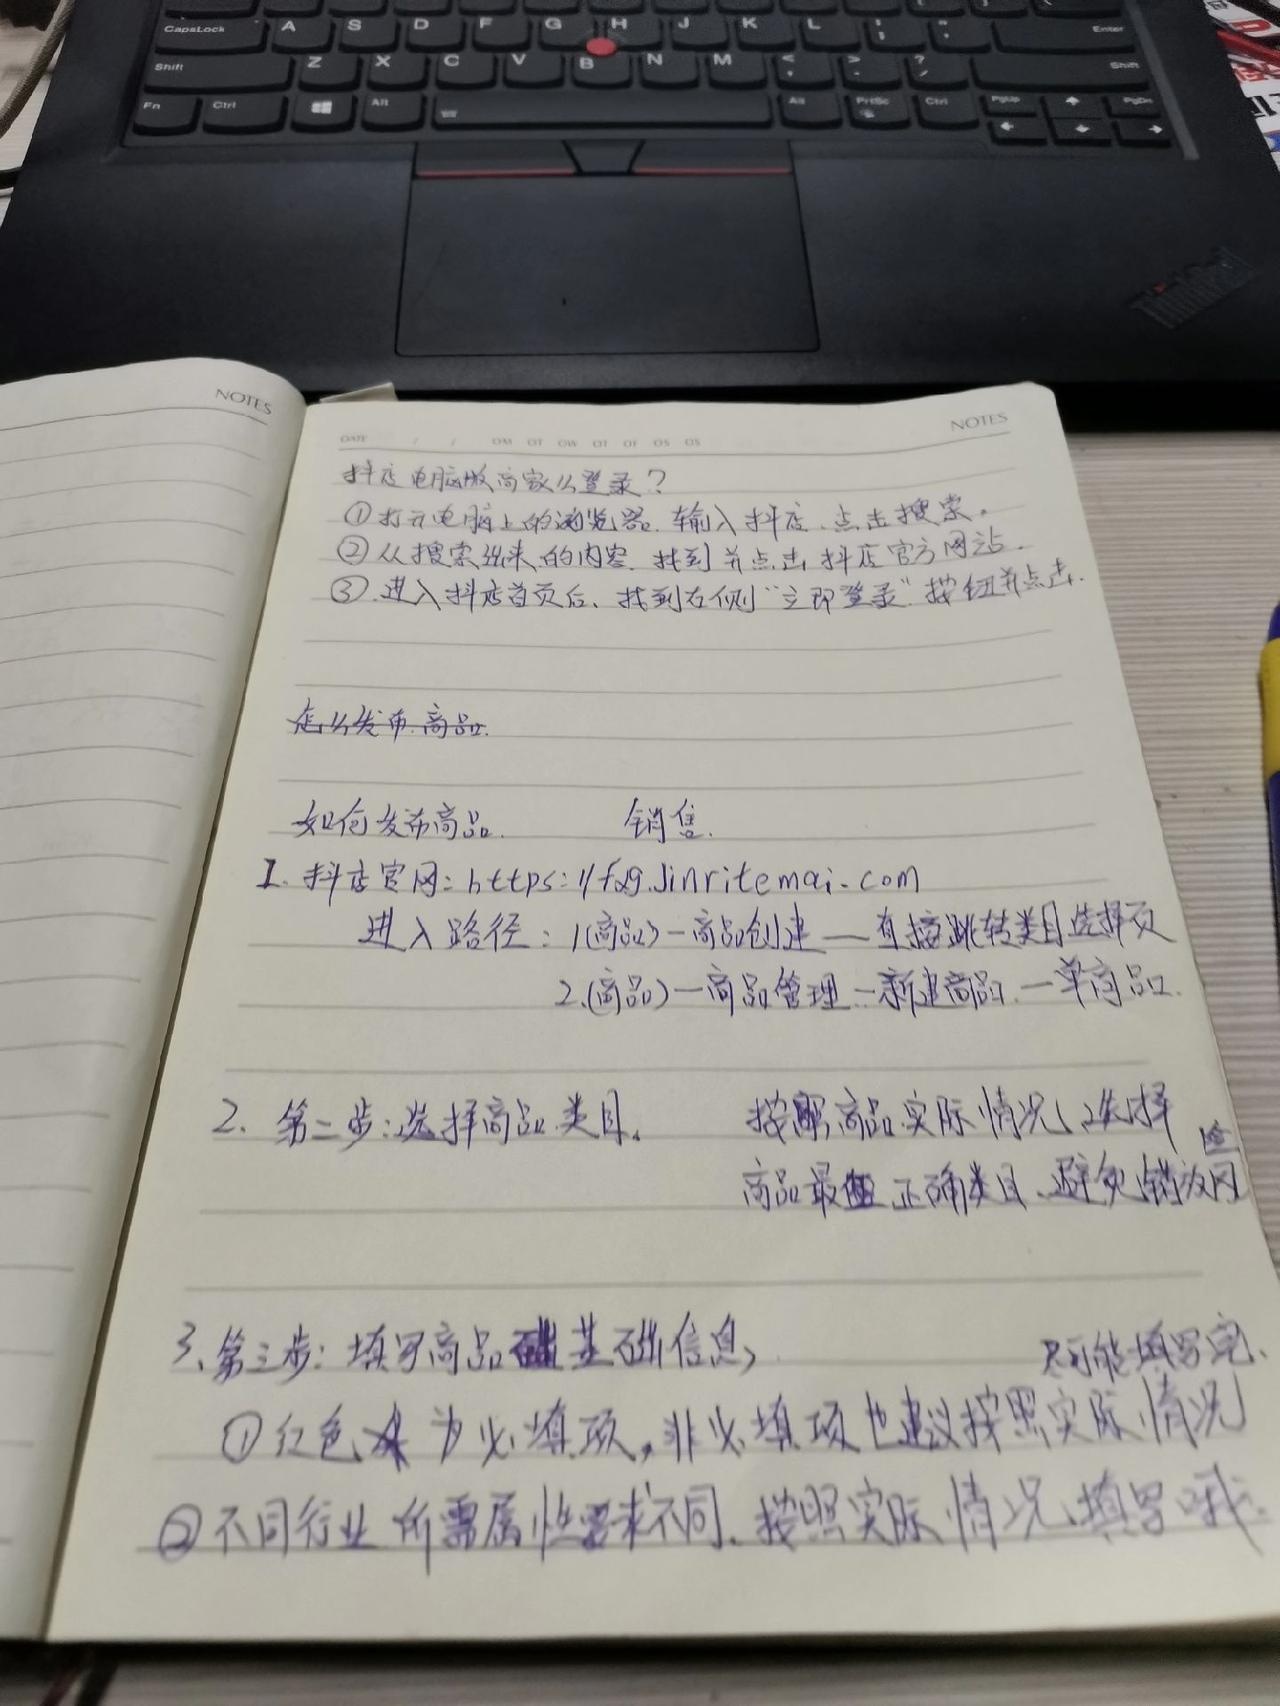 CapsLock A S D F G H J K L : ; " ' Enter
Shift Z X C V B N M < , > . ? / Shift
Fn Ctrl Alt Alt PrtSc Ctrl PgUp PgDn
ThinkPad
NOTES
NOTES
DATE / /
抖店电脑版商家么登录？
①打开电脑上的浏览器、输入抖店、点击搜索。
②从搜索出来的内容、找到并点击抖店官方网站.
③.进入抖店首页后、找到右侧“立即登录”按钮并点击.
怎么发布商品.
如何发布商品. 销售.
1. 抖店官网: https://fxg.Jinritemai.com
进入路径: 1(商品)—商品创建—直接跳转类目选择页
2.(商品)—商品管理—新建商品.—单商品.
2. 第二步:选择商品类目. 按照商品实际情况、选择
商品最 正确类目、避免错放
3.第三步: 填写商品 基础信息, 尽可能填写完.
①红色 为必填项,非必填项也建议按照实际情况
②不同行业所需属性要求不同、按照实际情况填写哦.